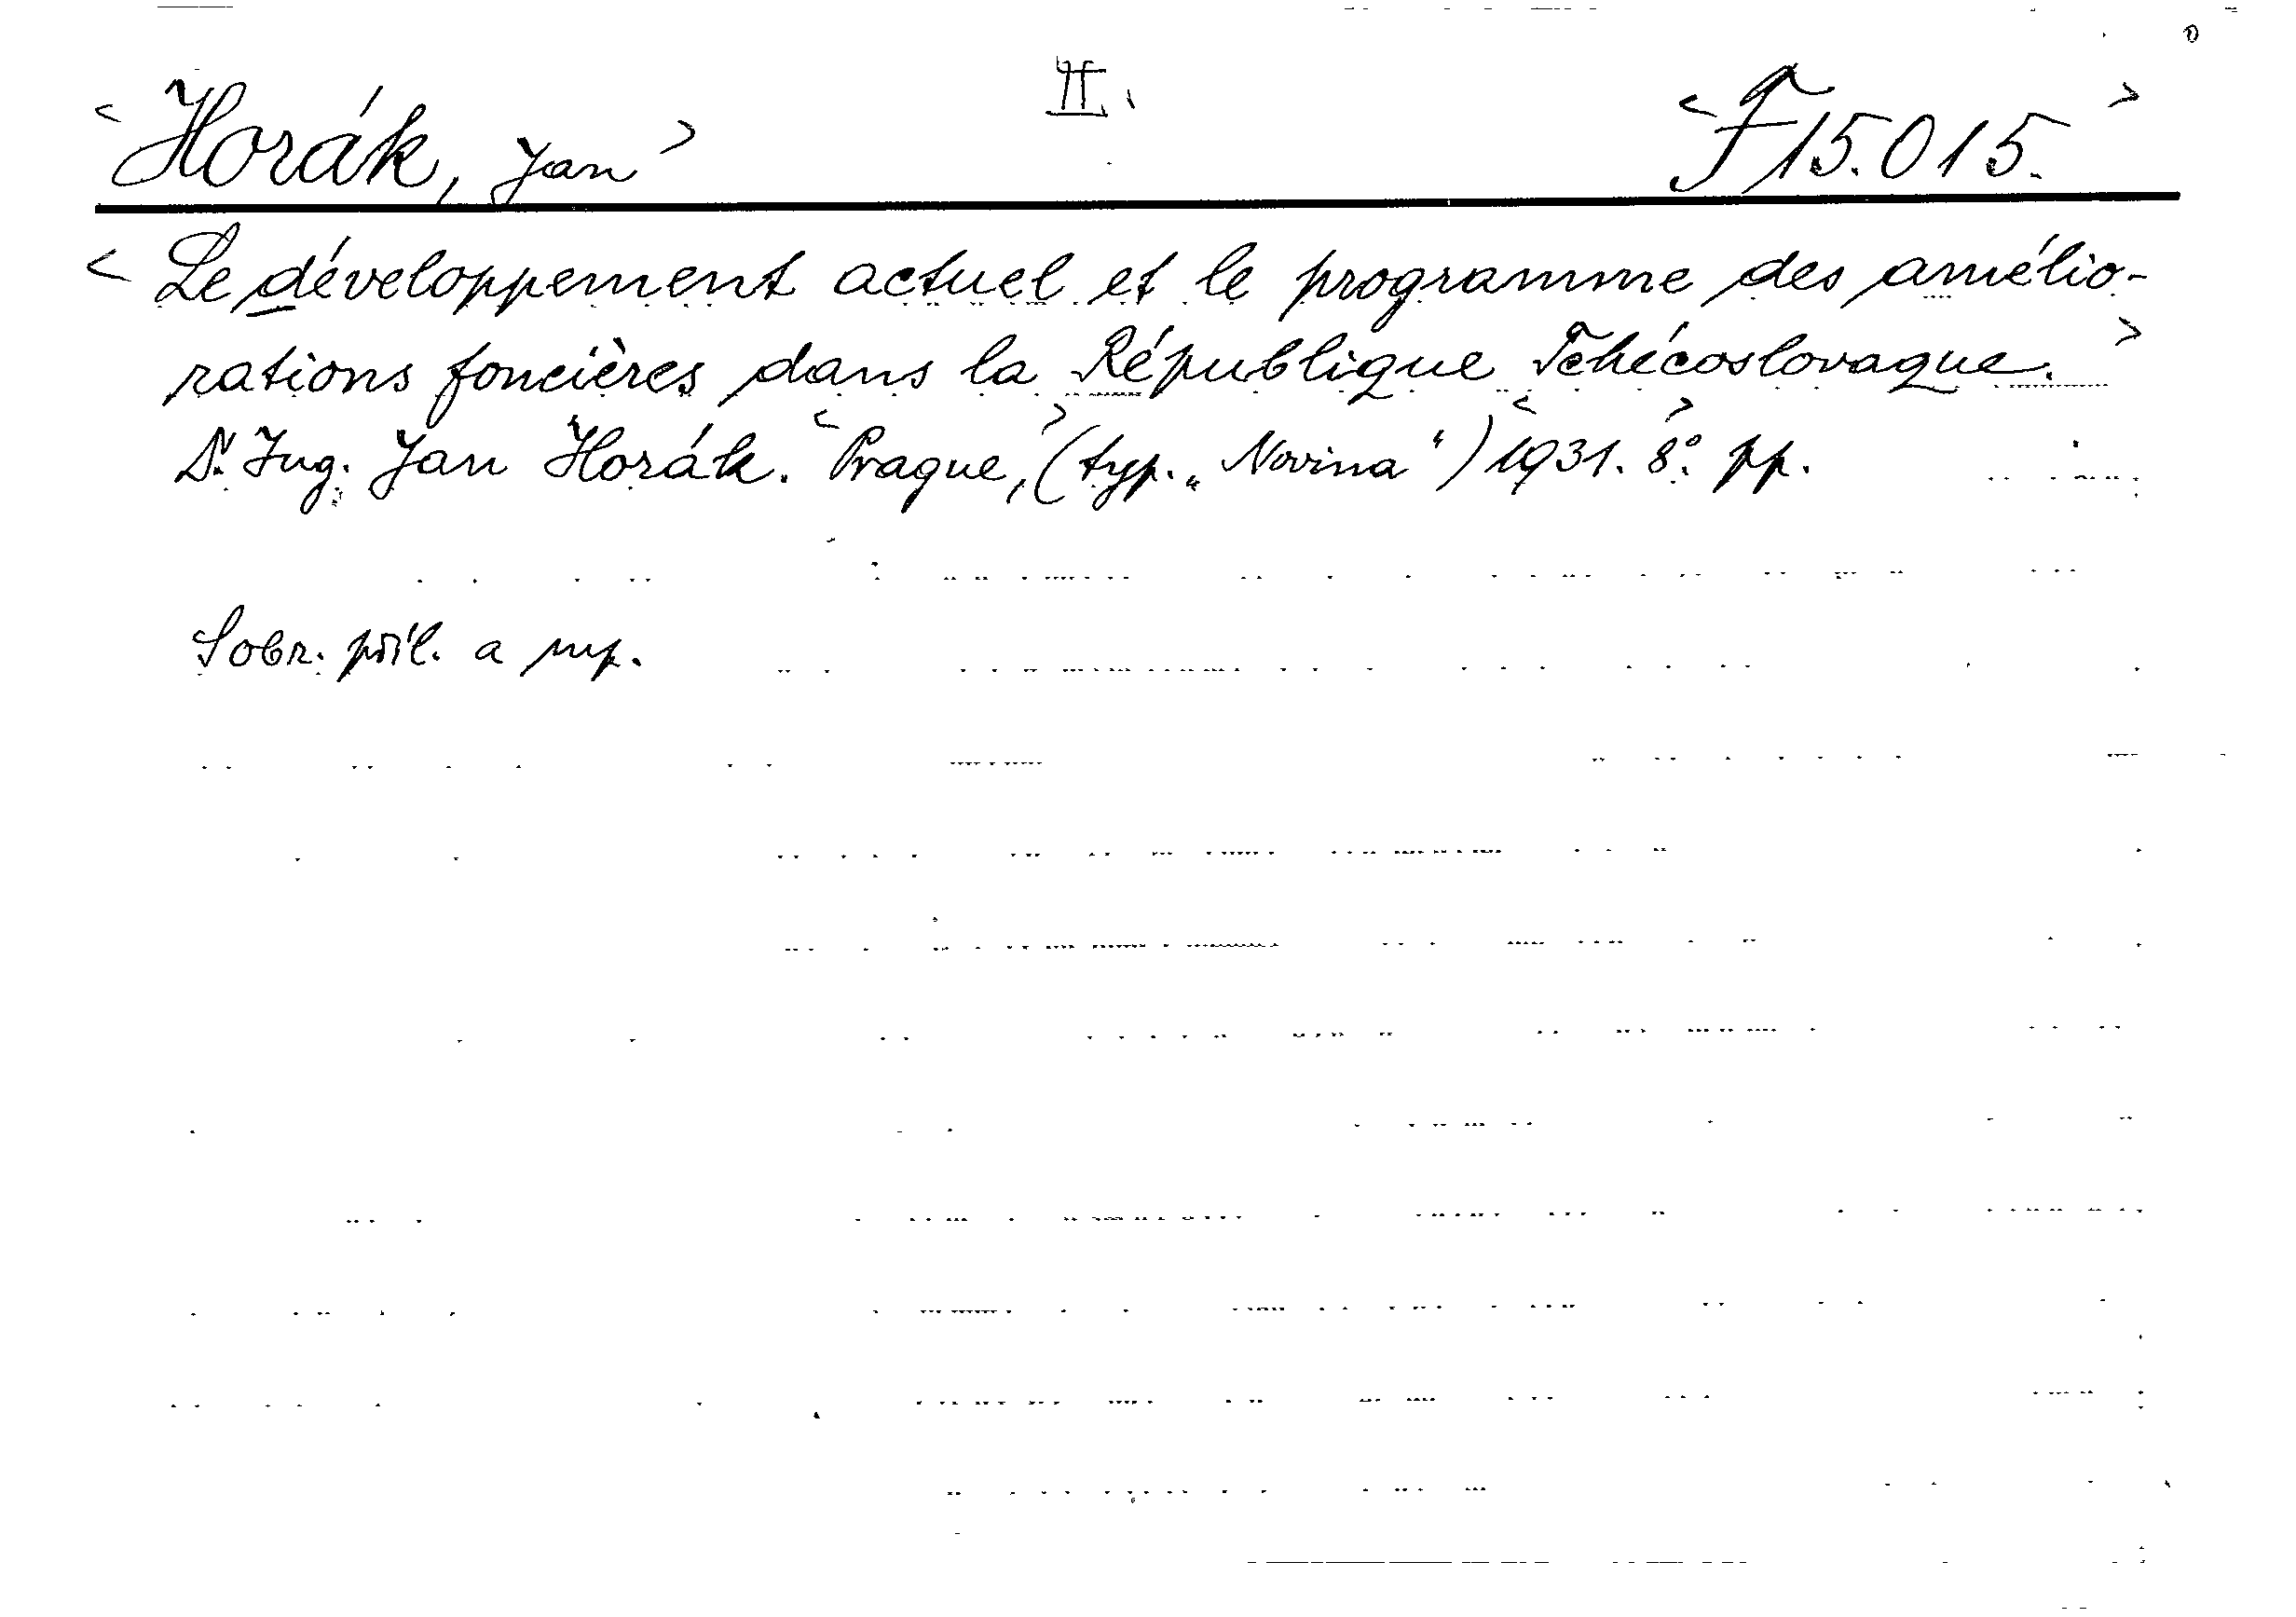 <Horák, Jan> II. <F 15.015.>
<Le développement actuel et le programme des amélio-
rations foncières dans la République Tchécoslovaque.>
Dr. Ing. Jan Horák. <Prague,> (typ. „Novina“) <1931.> 8°. pp.
S obr. příl. a mp.